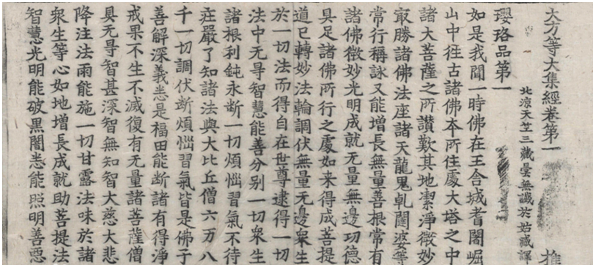 大方等大集經卷第一
北涼天竺三藏曇無讖於姑臧譯
瓔珞品第一
如是我聞一時佛在王舍城耆闍崛
山中往古諸佛本所住處大塔之中
諸大菩薩之所讚歎其地潔淨微妙
冣勝諸佛法座諸天龍鬼乹闥婆等
常行稱詠又能增長無量善根常有
諸佛微妙光明成就无量無邊功德
具足諸佛所行之處如来得成菩提
道已轉妙法輪調伏无量无邊衆生
於一切法而得自在世尊逮得一切
法中无㝵智慧能善分別一切衆生
諸根利鈍永断一切煩惱習氣不待
莊嚴了知諸法與大比丘僧六万八
千一切調伏断煩惱習氣皆是佛子
善解深義悉是福田能断諸有得淨
戒果不生不滅復有无量諸菩薩僧
具无㝵智甚深智無知智大慈大悲
降注法雨能施一切甘露法味於諸
衆生等心如地增長成就助菩提法
智慧光明能破黒闇悉能照明善惡